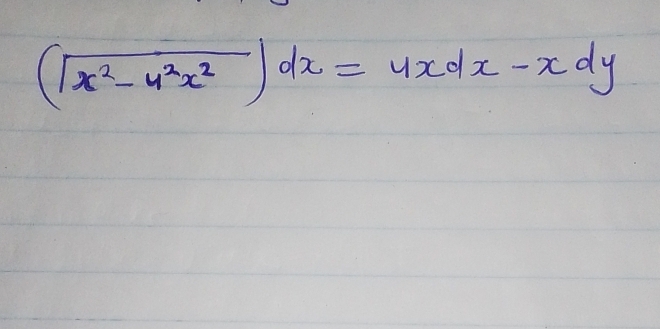 (√(x² - 4²x²)) dx = 4xdx - xdy